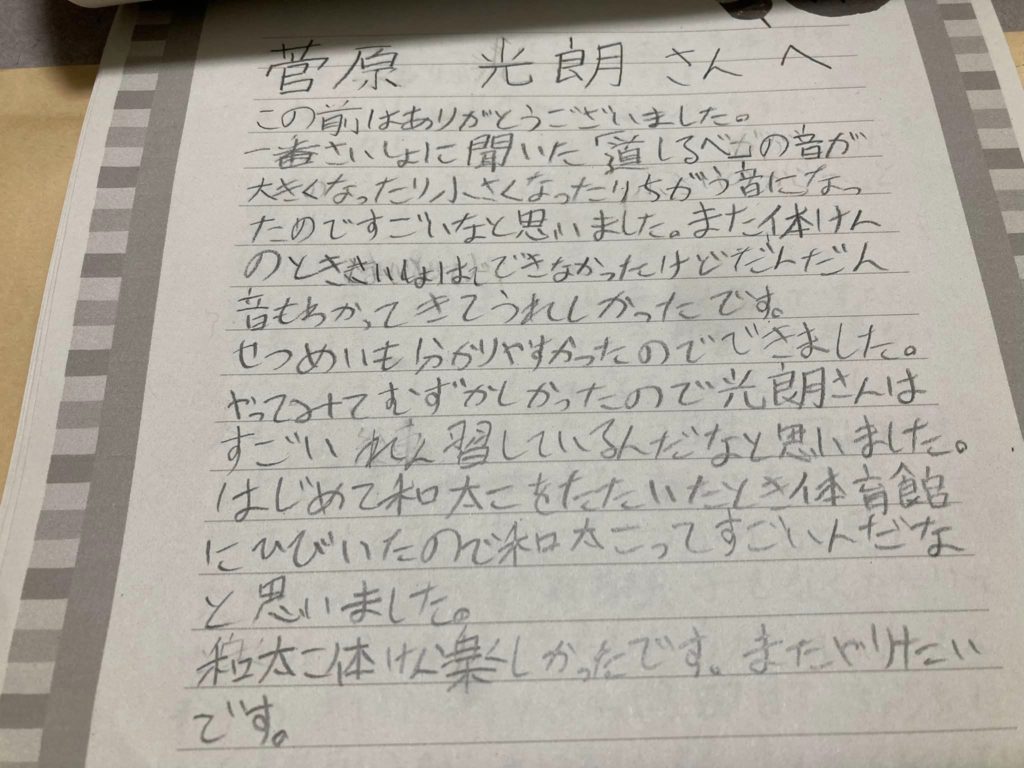 菅原 光朗さんへ
この前はありがとうございました。
一番さいしょに聞いた「道しるべ」の音が
大きくなったり小さくなったりちがう音になっ
たのですごいなと思いました。また体けん
のときさいしょはできなかったけどだんだん
音もわかってきてうれしかったです。
せつめいも分かりやすかったのでできました。
やってみてむずかしかったので光朗さんは
すごいれん習しているんだなと思いました。
はじめて和太こをたたいたとき体育館
にひびいたので和太こってすごいんだな
と思いました。
和太こ体けん楽しかったです。またやりたい
です。